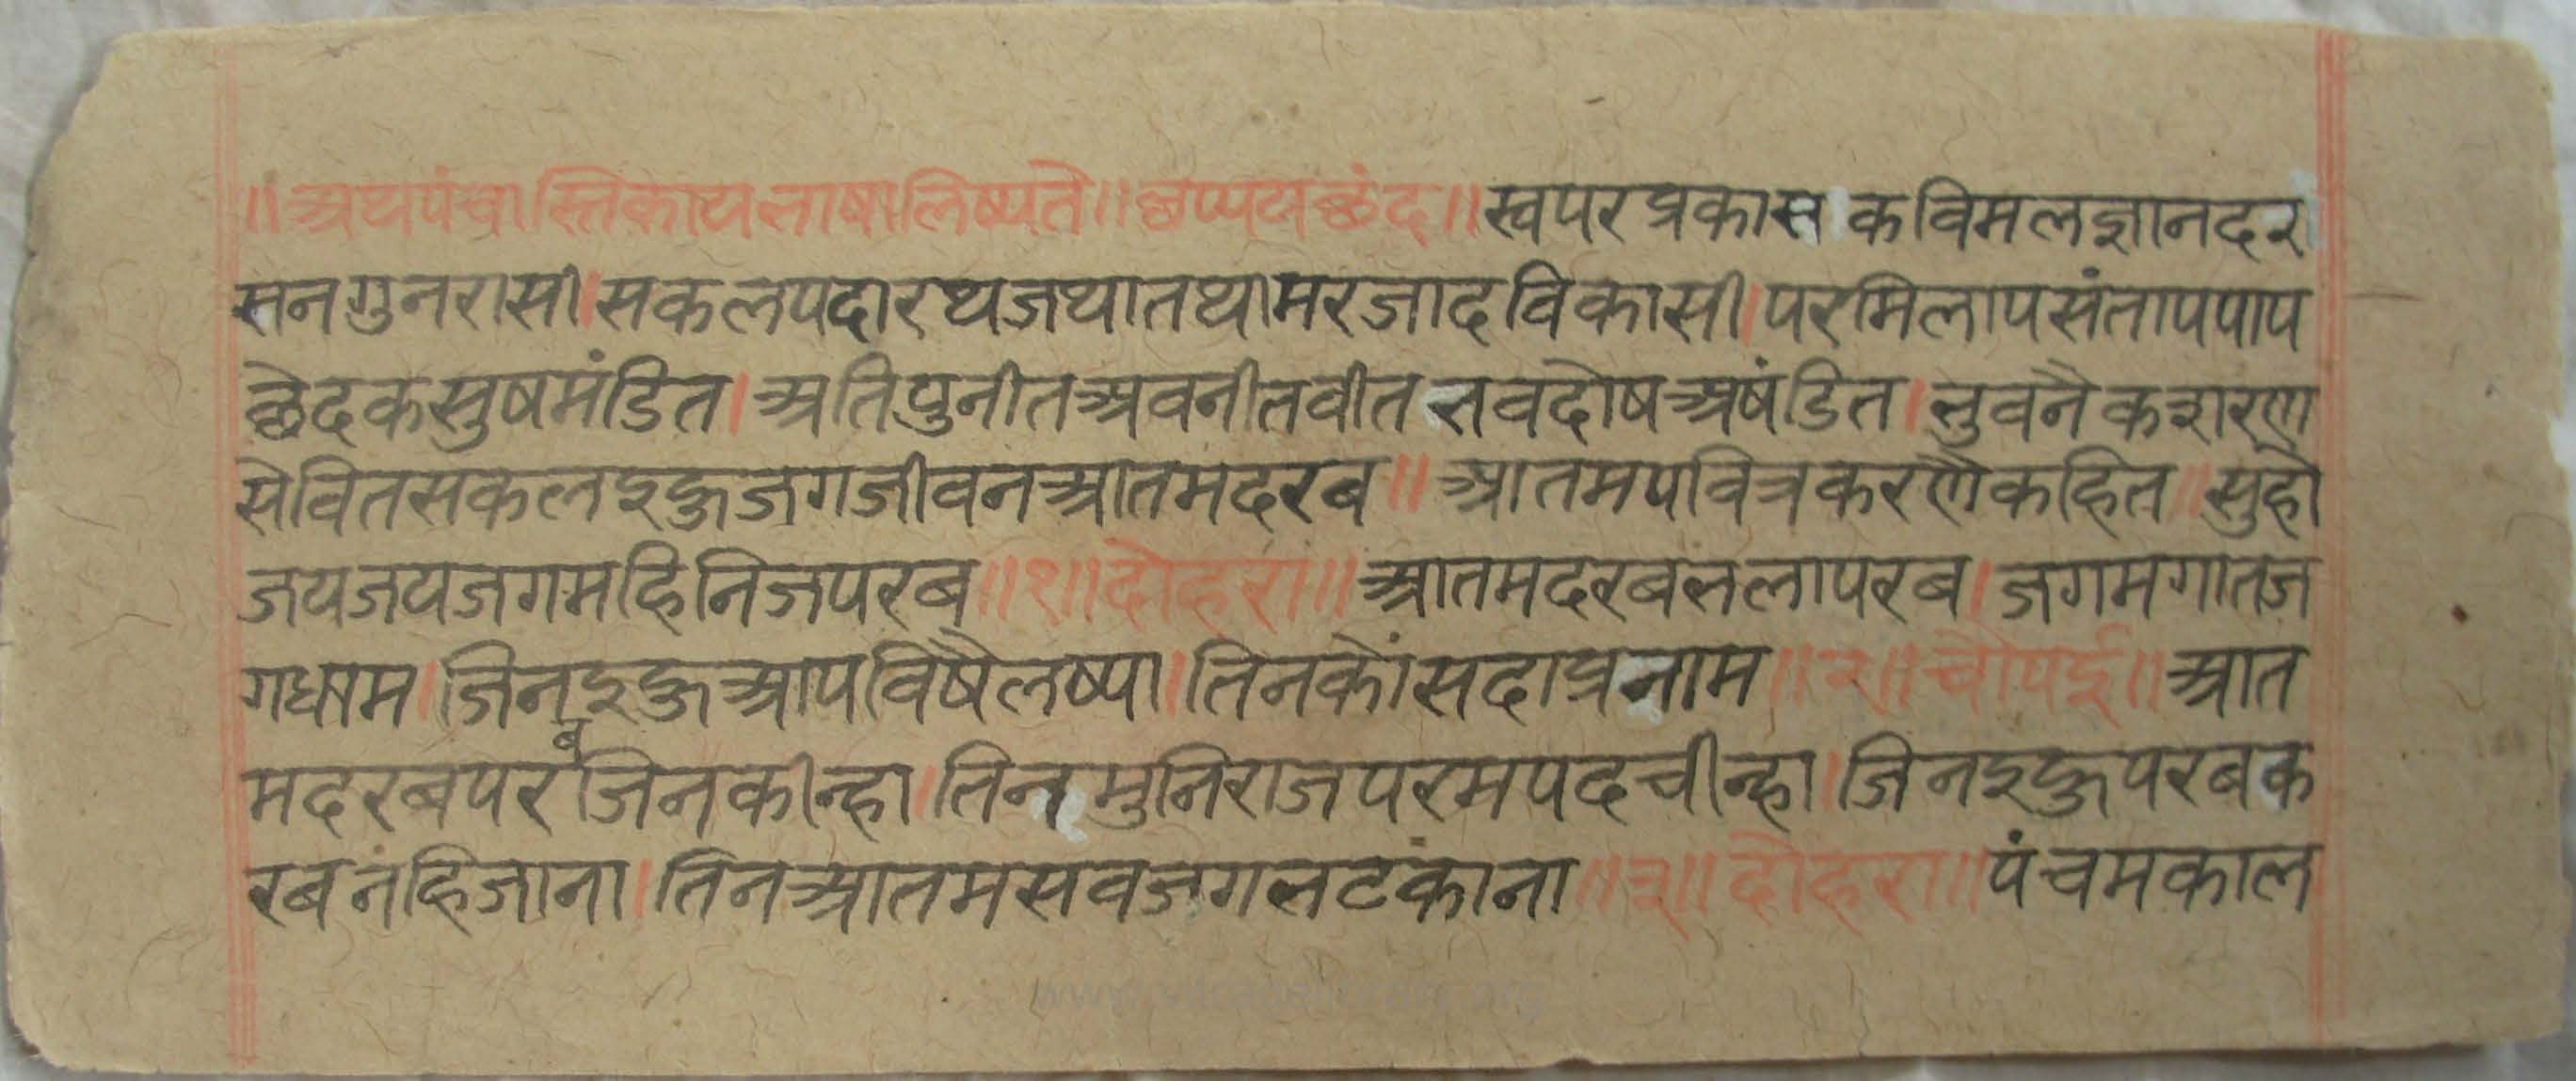 ॥अथपंचास्तिकायभाषालिष्यते॥छप्पयछंद॥स्वपरप्रकासकविमलज्ञानदर
सनगुनरासी।सकलपदारथजथातथामरजादविकासी।परमिलापसंतापपाप
छेदकसुषमंडित।अतिपुनीतअवनीतवीतभवदोषअषंडित।भुवनैकशरण
सेवितसकलइहुजगजीवनआतमदरब॥आतमपवित्रकरणैकहित॥सुहो
जयजयजगमहिनिजपरब॥१॥दोहरा॥आतमदरबभलापरब।जगमगातज
गधाम।जिनइहुआपविषैलष्या।तिनकौंसदाप्रनाम॥२॥चौपई॥आत
मदरबपरबजिनकीन्हा।तिनमुनिराजपरमपदचीन्हा।जिनइहुपरबक
रबनंहिजाना।तिनआतमसवजगभटकांना॥३॥दोहरा॥पंचमकाल